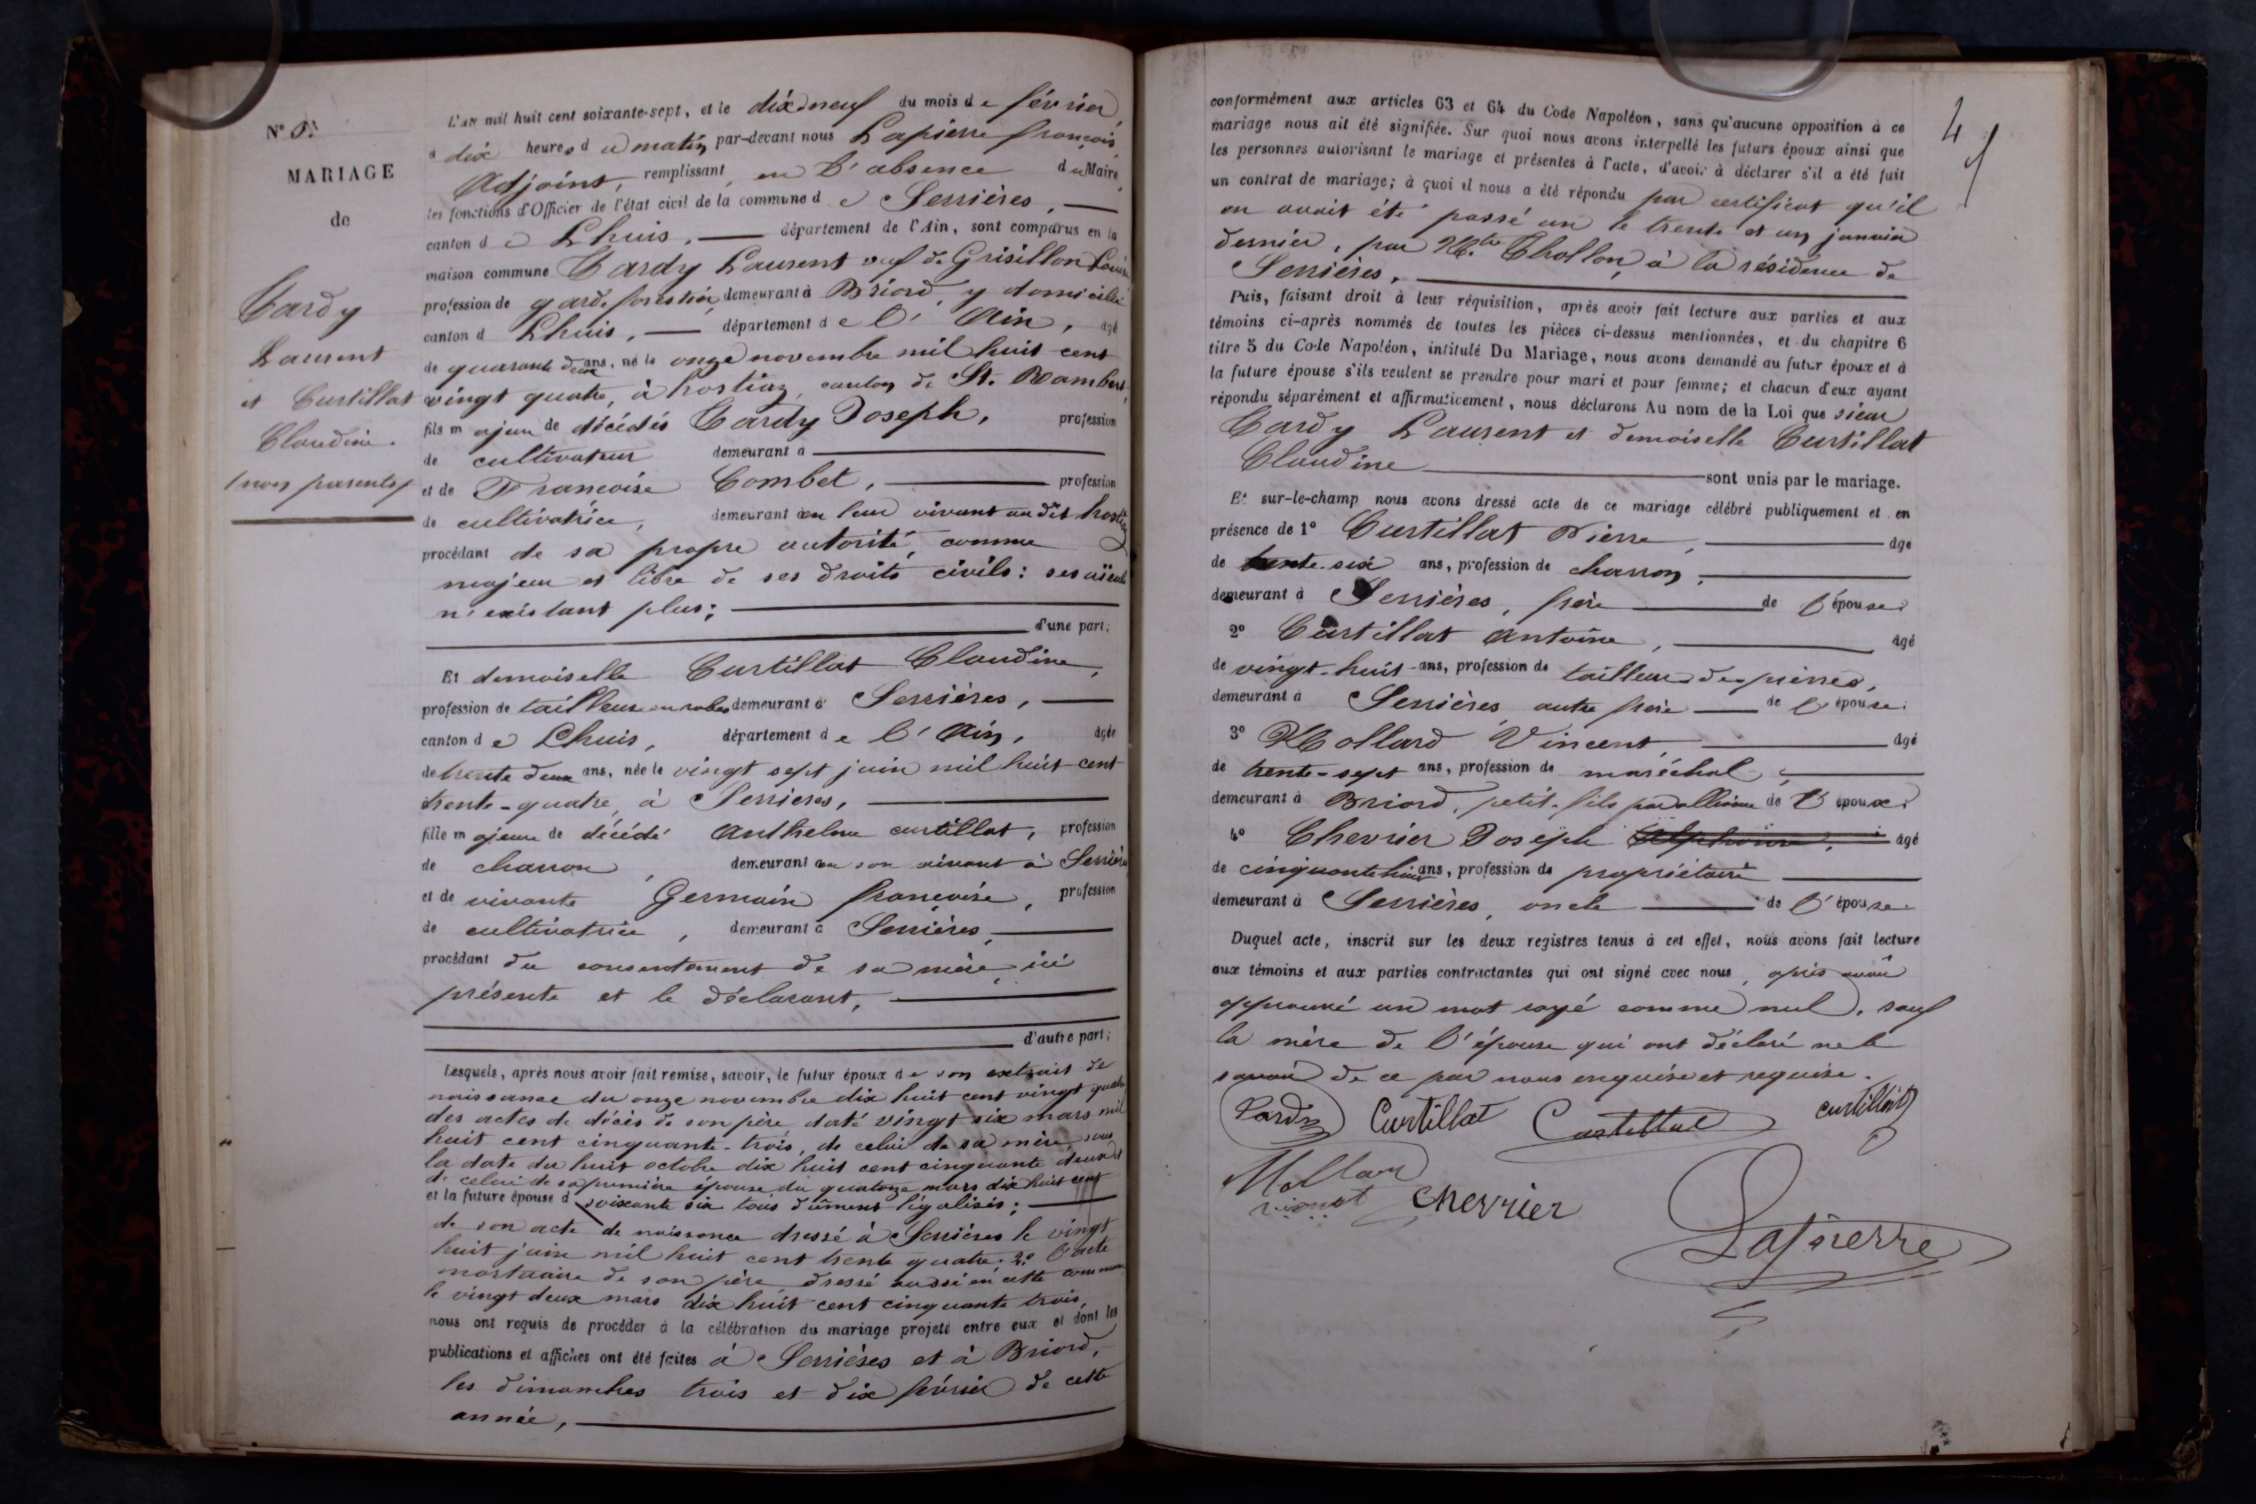 N° 6.
MARIAGE
de
Cardy
Laurent
et Curtillat
Claudine.
(non parents)
L'an mil huit cent soixante-sept, et le dix neuf du mois de février,
à dix heures du matin par-devant nous Lapierre françois,
Adjoint, remplissant en l'absence du Maire,
les fonctions d'Officier de l'état civil de la commune de Serrières,
canton de Lhuis, département de l'Ain, sont comparus en la
maison commune Cardy Laurent veuf de Grisillon Louise
profession de garde forestier, demeurant à Briord, y domicilié
canton d Lhuis, département de l'Ain, âgé
de quarante deux ans, né le onze novembre mil huit cent
vingt quatre, à hostiaz, canton de St. Rambert,
fils majeur de décédés Cardy Joseph, profession
de cultivateur demeurant à
et de Francoise Combet, profession
de cultivatrice, demeurant en leur vivant au dit hostiaz
procédant de sa propre autorité, comme
majeur et libre de ses droits civils: ses aïeuls
n'existant plus;
d'une part;
Et demoiselle Curtillat Claudine,
profession de tailleuse en robes demeurant à Serrières,
canton de Lhuis, département de l'Ain, âgée
de trente deux ans, née le vingt sept juin mil huit cent
trente-quatre, à Serrieres,
fille majeure de décédé Anthelme curtillat, profession
de charron, demeurant en son vivant à Serrières
et de vivante Germain françoise, profession
de cultivatrice, demeurant à Serrières,
procédant du consentement de sa mère, ici
présente et le déclarant,
d'autre part;
Lesquels, après nous avoir fait remise, savoir, le futur époux de son extrait de
naissance du onze novembre dix huit cent vingt quatre
des actes de décès de son père, daté vingt six mars mil
huit cent cinquante-trois, de celui de sa mère, sous
la date du huit octobre dix huit cent cinquante deux et
de celui de sa première épouse du quatorze mars dix huit cent
et la future épouse d soixante six tous dûment légalisés;
de son acte de naissance dressé à Serrières le vingt
huit juin mil huit cent trente quatre. 2° l'acte
mortuaire de son père dressé aussi en cette commune
le vingt deux mars dix huit cent cinquante trois,
nous ont requis de procéder à la célébration du mariage projeté entre eux et dont les
publications et affiches ont été faites à Serrières et à Briord,
les dimanches trois et dix février de cette
année,
4
conformément aux articles 63 et 64 du Code Napoléon, sans qu'aucune opposition à ce
mariage nous ait été signifiée. Sur quoi nous avons interpellé les futurs époux ainsi que
les personnes autorisant le mariage et présentes à l'acte, d'avoir à déclarer s'il a été fait
un contrat de mariage; à quoi il nous a été répondu par certificat qu'il
en avait été passé un le trente et un janvier
dernier, par Mtre Thollon, à la résidence de
Serrières,
Puis, faisant droit à leur réquisition, après avoir fait lecture aux parties et aux
témoins ci-après nommés de toutes les pièces ci-dessus mentionnées, et du chapitre 6
titre 5 du Code Napoléon, intitulé Du Mariage, nous avons demandé au futur époux et à
la future épouse s'ils veulent se prendre pour mari et pour femme; et chacun d'eux ayant
répondu séparément et affirmativement, nous déclarons Au nom de la Loi que sieur
Cardy Laurent et demoiselle Curtillat
Claudine sont unis par le mariage.
Et sur-le-champ nous avons dressé acte de ce mariage célébré publiquement et en
présence de 1° Curtillat Pierre, âgé
de trente-six ans, profession de charron,
demeurant à Serrières, frère de l'épouse.
2° Curtillat Antoine, âgé
de vingt-huit ans, profession de tailleur de pierres,
demeurant à Serrières, autre frère de l'épouse.
3° Mollard Vincent, âgé
de trente-sept ans, profession de maréchal,
demeurant à Briord, petit-fils par alliance de l'époux.
4° Chevrier Joseph âgé
de cinquante huit ans, profession de propriétaire
demeurant à Serrières, oncle de l'épouse.
Duquel acte, inscrit sur les deux registres tenus à cet effet, nous avons fait lecture
aux témoins et aux parties contractantes qui ont signé avec nous, après avoir
approuvé un mot rayé comme nul, sauf
la mère de l'épouse qui ont déclaré ne le
savoir de ce par nous enquise et requise.
Cardy Curtillat Curtillat curtillat
Mollard
vincent Chevrier
Lapierre